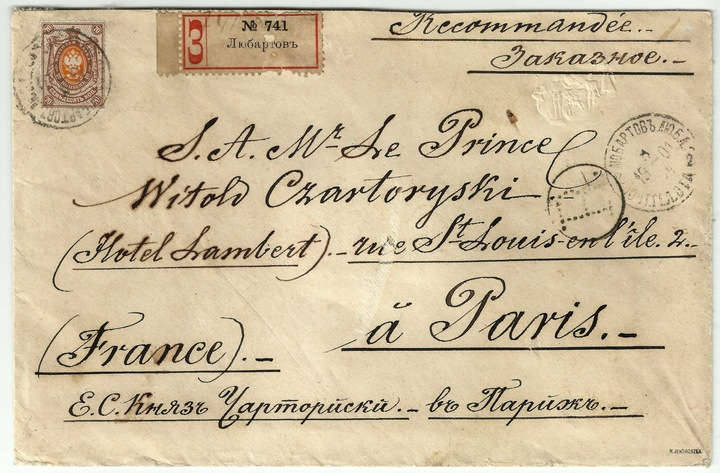 № 741
З
Любартовъ
Recommandée.
Заказное.
S. A. Mr. Le Prince
Witold Czartoryski
(Hotel Lambert). rue St. Louis-en l'île. 2.
à Paris.
(France).
Е. С. Князъ Чарторийскій. въ Парижъ.